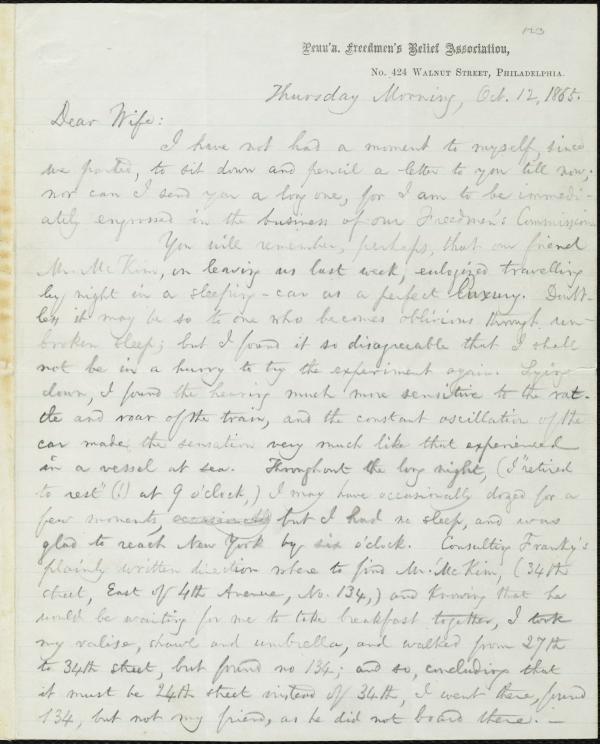 123
Penn'a. Freedmen's Relief Association,
No. 424 Walnut Street, Philadelphia.
Thursday Morning, Oct. 12, 1865.
Dear Wife:
I have not had a moment to myself, since
we parted, to sit down and pencil a letter to you till now;
nor can I send you a long one, for I am to be immedi-
ately engrossed in the business of our Freedmen's Commission.
You will remember, perhaps, that our friend
Mr. McKim, on leaving us last week, eulogized travelling
by night in a sleeping-car as a perfect luxury. Doubt-
less it may be so to one who becomes oblivious through un-
broken sleep; but I found it so disagreeable that I shall
not be in a hurry to try the experiment again. Lying
down, I found the hearing much more sensitive to the rat-
tle and roar of the train, and the constant oscillation of the
car made the sensation very much like that experienced
in a vessel at sea. Throughout the long night, (I "retired
to rest" (!) at 9 o'clock,) I may have occasionally dozed for a
few moments, occasionally but I had no sleep, and was
glad to reach New York by six o'clock. Consulting Franky's
plainly written direction where to find Mr. McKim, (34th
street, East of 4th Avenue, No. 134,) and knowing that he
would be waiting for me to take breakfast together, I took
my valise, shawl and umbrella, and walked from 27th
to 34th street, but found no 134; and so, concluding that
it must be 24th street instead of 34th, I went there, found
134, but not my friend, as he did not board there. —